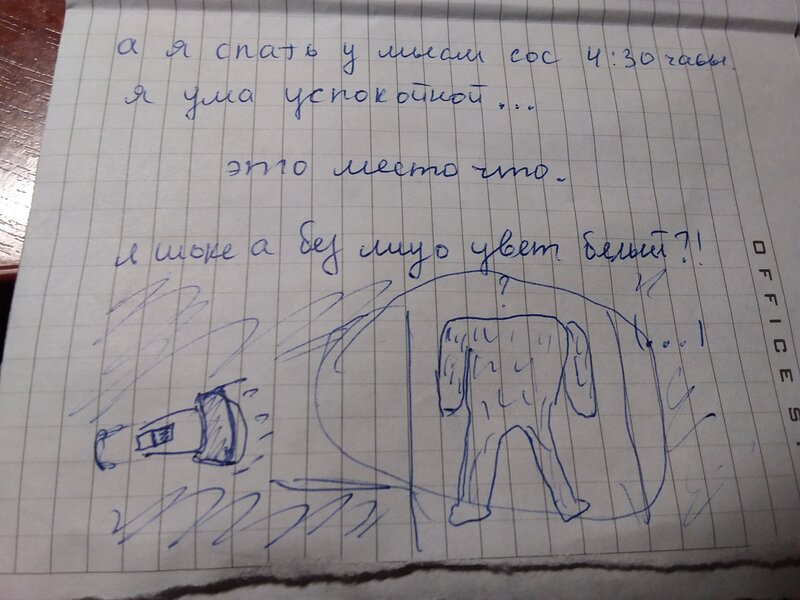 а я спать у мысли сос 4:30 часы.
я ума успокойной...
это место что.
я шоке а без лицо цвет белый?!
?
OFFICE S